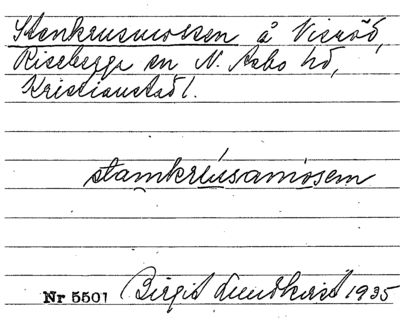 Stenkrusmossen å Visröd,
Riseberga sn N. Asbo hd,
Kristianstad l.
stamkreusamosem
Nr 5501 Birgit Lundkvist 1935